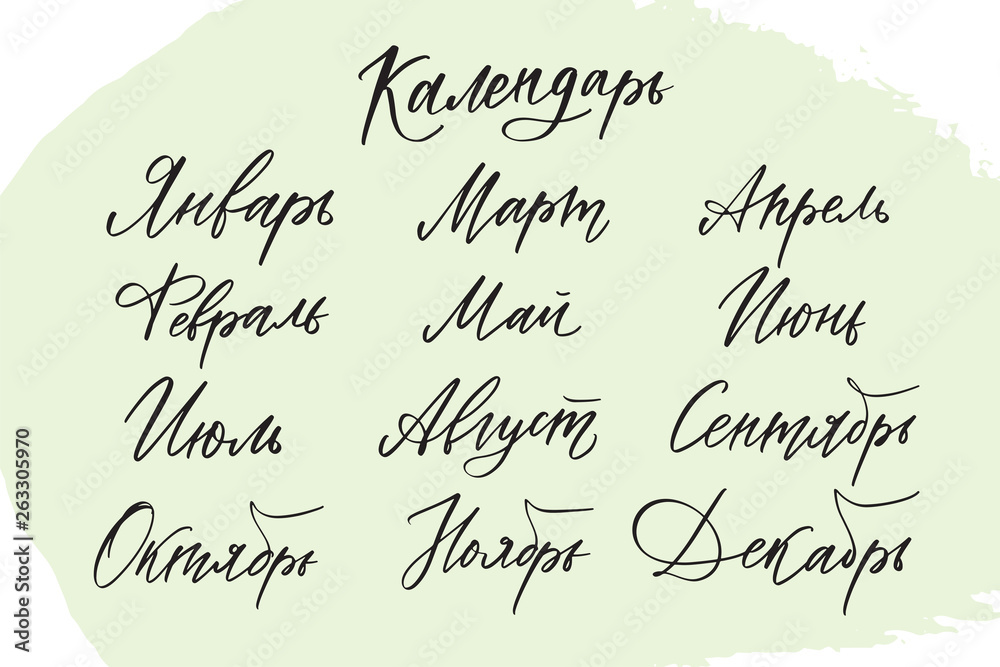 Календарь
Январь Март Апрель
Февраль Май Июнь
Июль Август Сентябрь
Октябрь Ноябрь Декабрь
Adobe Stock | #263305970